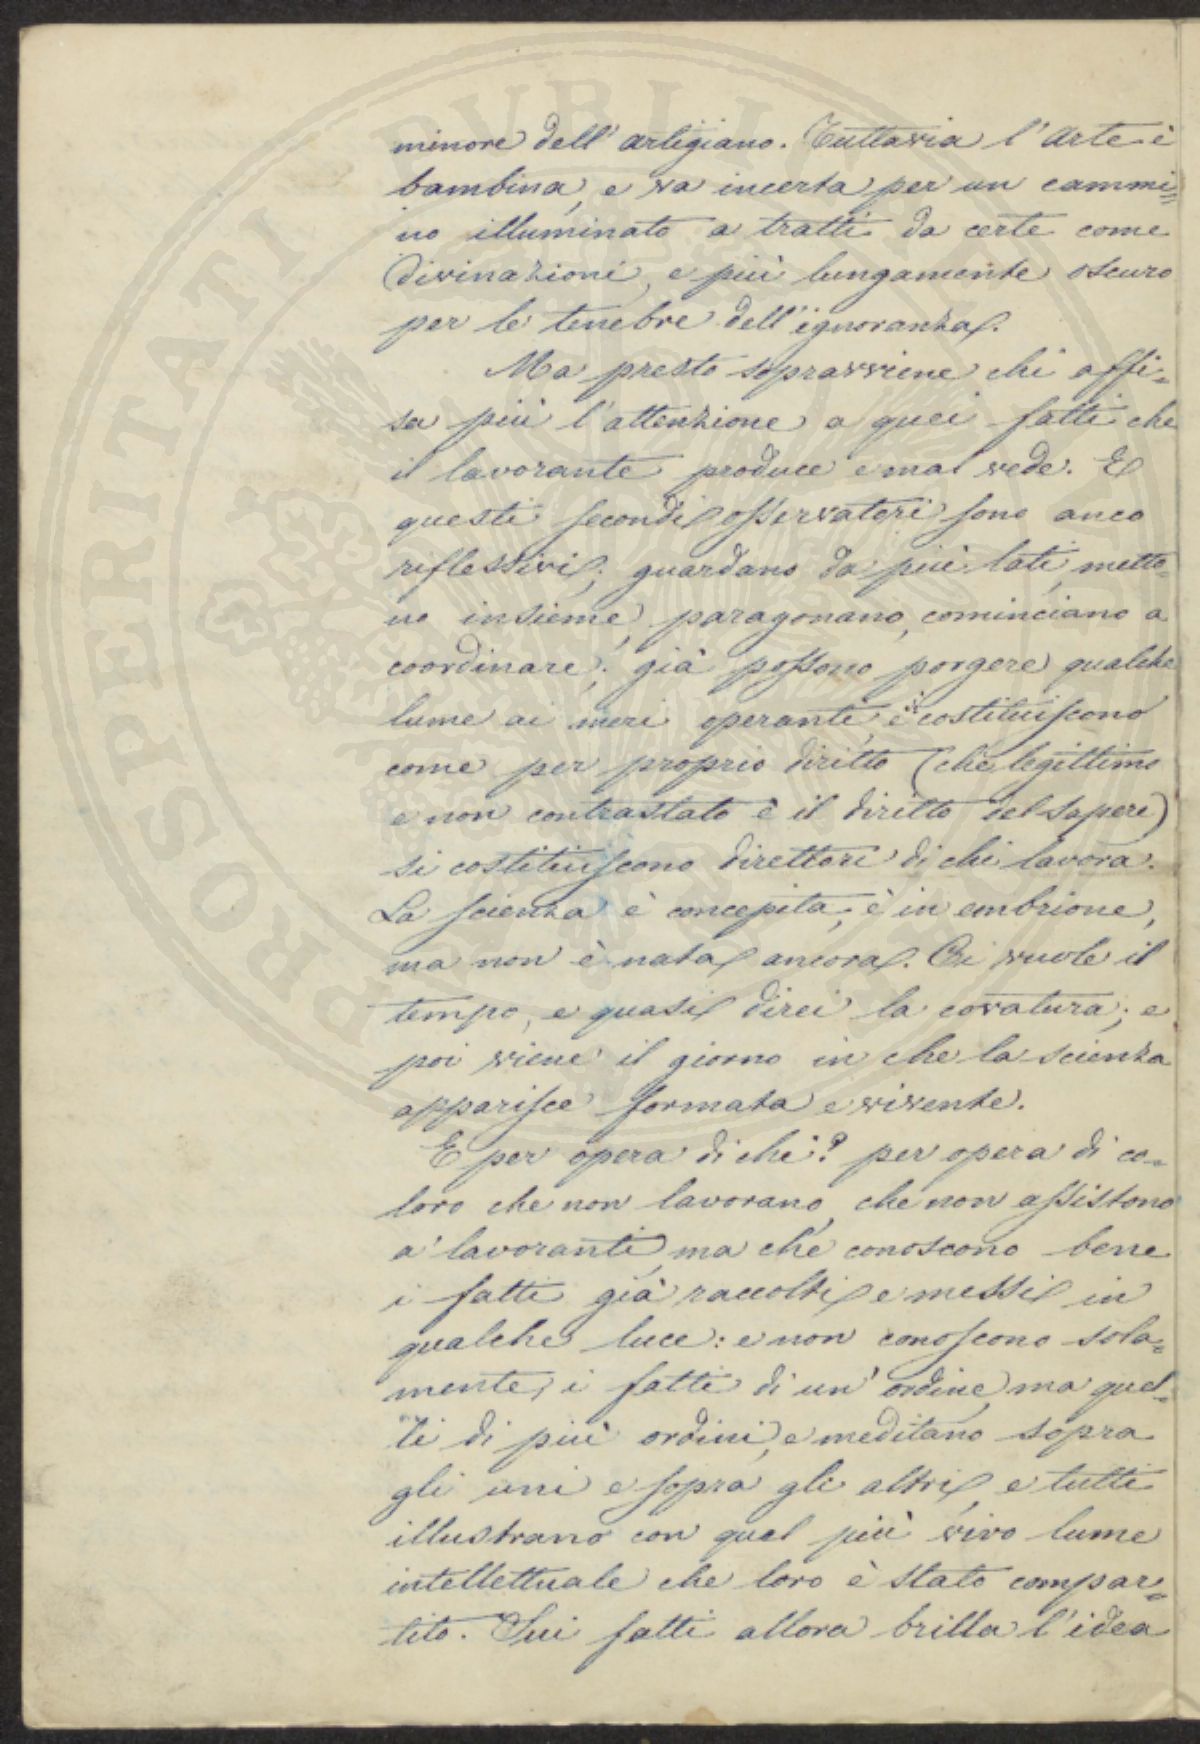 minore dell'artigiano. Tuttavia l'Arte è
bambina, e va incerta per un cammi=
no illuminato a tratti da certe come
divinazioni, e più lungamente oscuro
per le tenebre dell'ignoranza.
Ma presto sopravviene chi affi=
sa più l'attenzione a quei fatti che
il lavorante produce e mal vede. E
questi secondi osservatori sono anco
riflessivi; guardano da più lati, metto=
no insieme, paragonano, cominciano a
coordinare; già possono porgere qualche
lume ai meri operanti, e costituiscono
come per proprio diritto (che legittimo
e non contrastato è il diritto del sapere)
si costituiscono direttori di chi lavora.
La scienza è concepita, è in embrione,
ma non è nata ancora. Ci vuole il
tempo, e quasi direi la covatura; e
poi viene il giorno in che la scienza
apparisce formata e vivente.
E per opera di chi? per opera di co=
loro che non lavorano, che non assistono
a' lavoranti, ma che conoscono bene
i fatti già raccolti e messi in
qualche luce: e non conoscono sola=
mente i fatti di un' ordine, ma quel=
li di più ordini, e meditano sopra
gli uni e sopra gli altri, e tutti
illustrano con quel più vivo lume
intellettuale che loro è stato compar=
tito. Sui fatti allora brilla l'idea
PROSPERITATI PUBLICAE